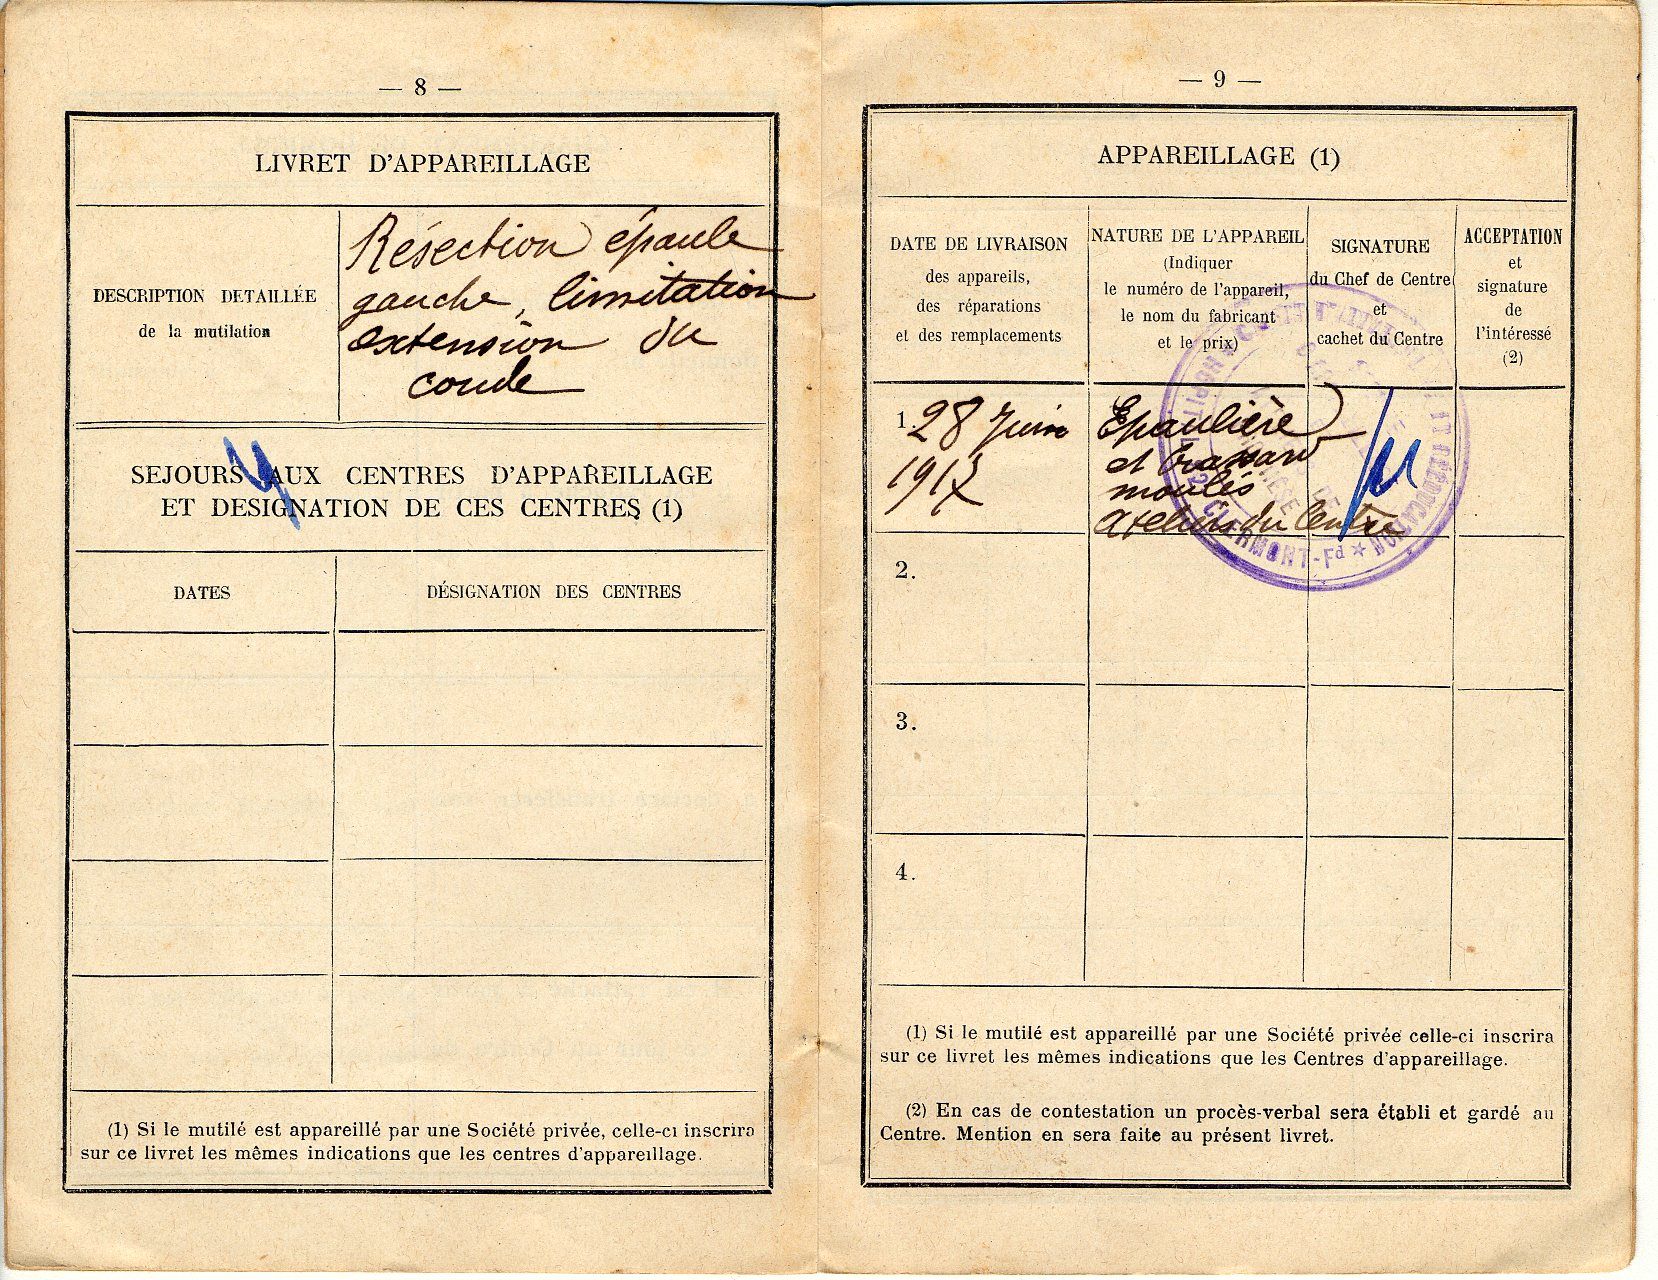 — 8 —
LIVRET D'APPAREILLAGE
DESCRIPTION DETAILLÉE
de la mutilation
Résection épaule
gauche, limitation
extension du
coude
SEJOURS AUX CENTRES D'APPAREILLAGE
ET DESIGNATION DE CES CENTRES (1)
DATES
DÉSIGNATION DES CENTRES
(1) Si le mutilé est appareillé par une Société privée, celle-ci inscrira
sur ce livret les mêmes indications que les centres d'appareillage.
— 9 —
APPAREILLAGE (1)
DATE DE LIVRAISON
des appareils,
des réparations
et des remplacements
NATURE DE L'APPAREIL
(Indiquer
le numéro de l'appareil,
le nom du fabricant
et le prix)
SIGNATURE
du Chef de Centre
et
cachet du Centre
ACCEPTATION
et
signature
de
l'intéressé
(2)
1.
28 Juin
1917
Epaulière
et brassard
moulés
Ateliers du Centre
CLERMONT-Fd ★
2.
3.
4.
(1) Si le mutilé est appareillé par une Société privée celle-ci inscrira
sur ce livret les mêmes indications que les Centres d'appareillage.
(2) En cas de contestation un procès-verbal sera établi et gardé au
Centre. Mention en sera faite au présent livret.